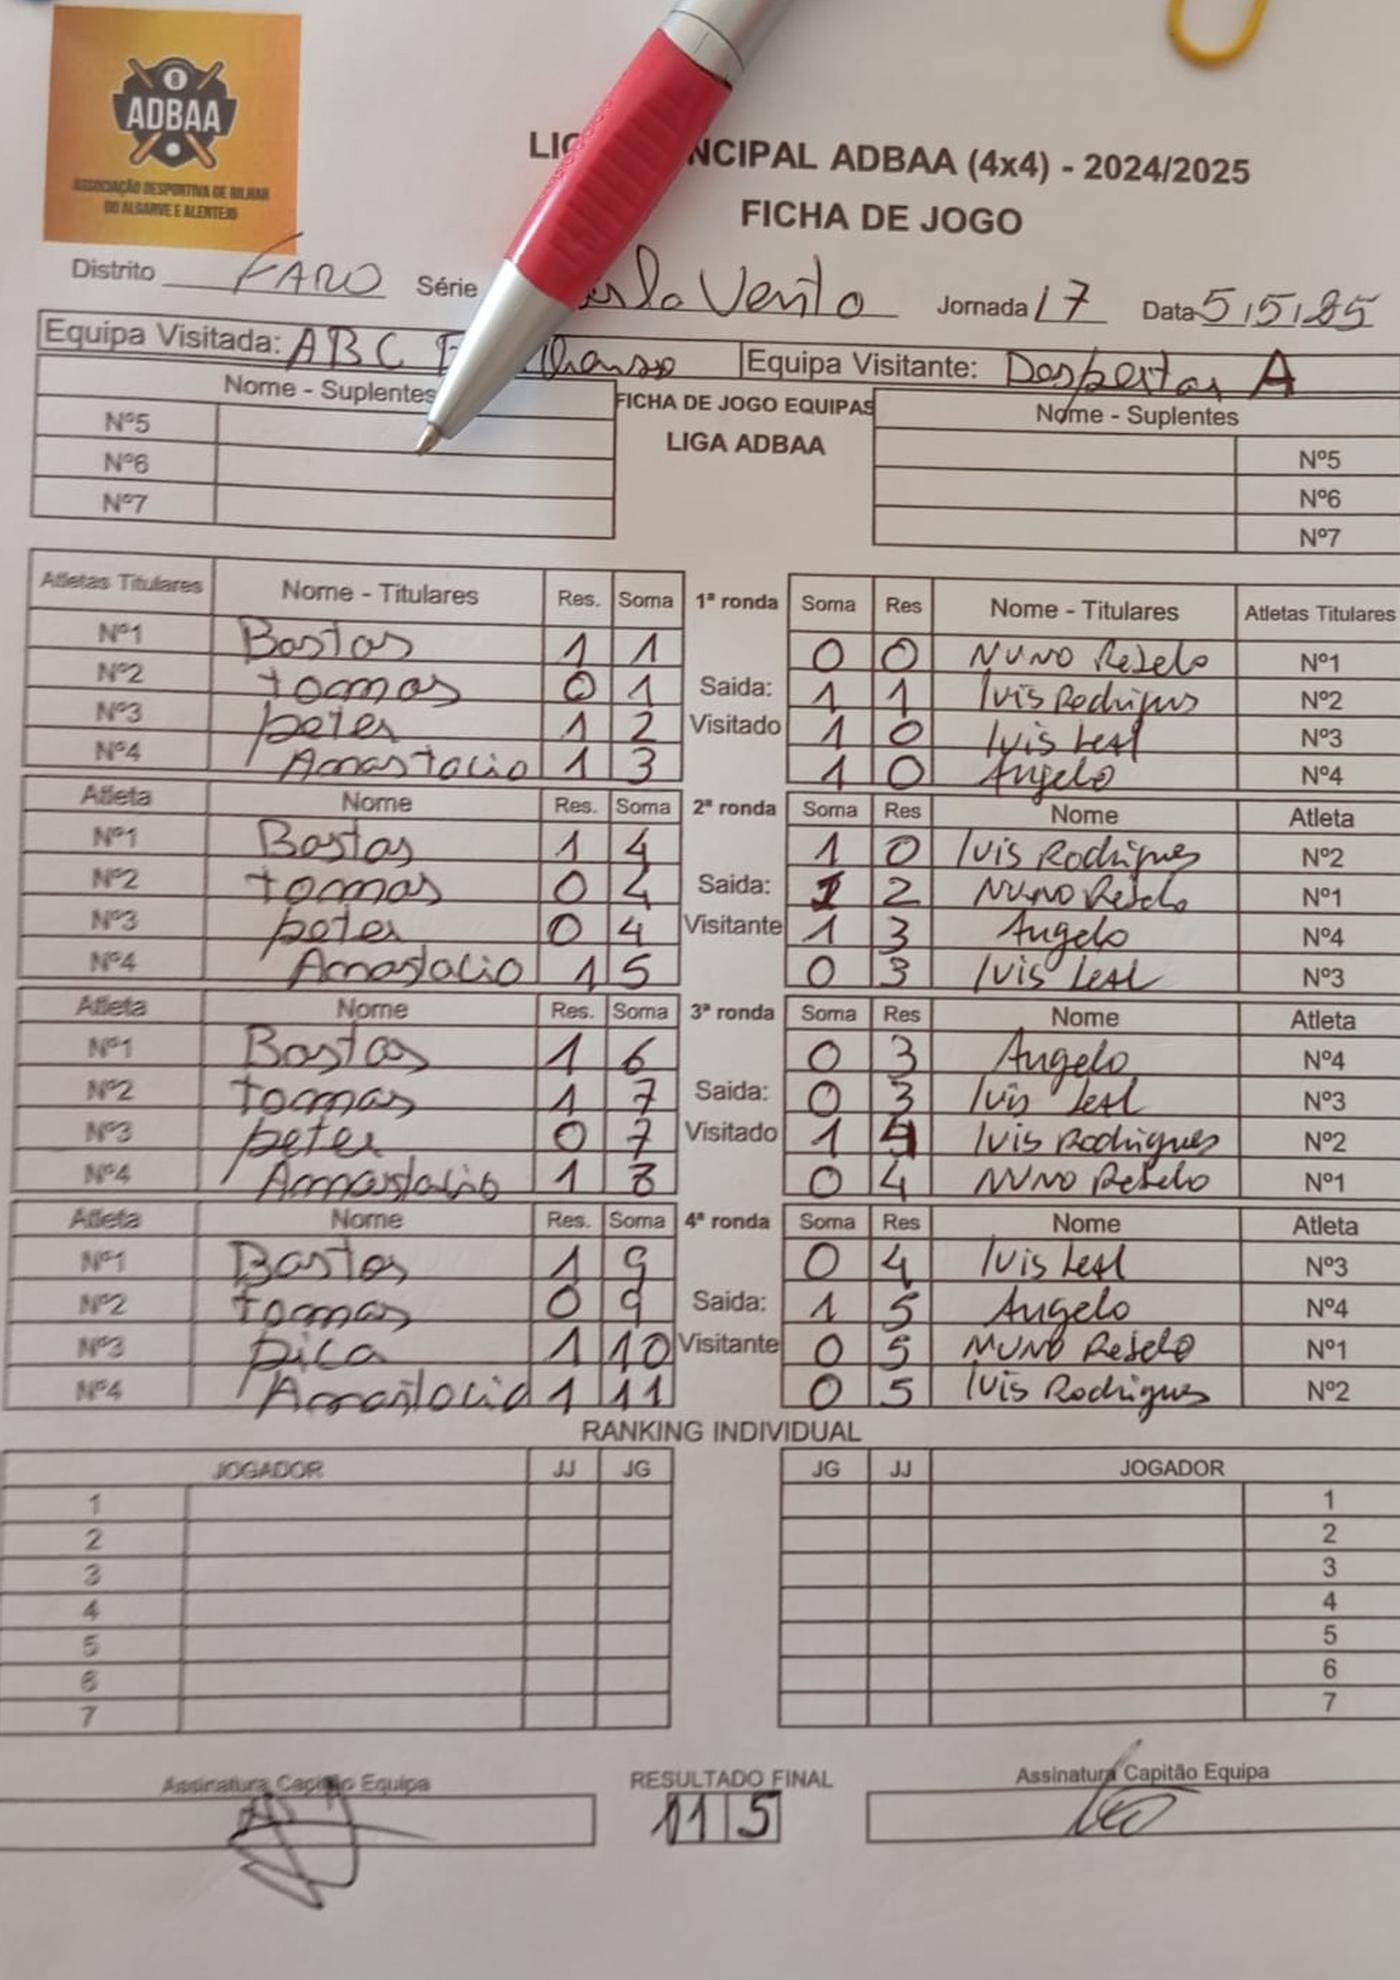 8
ADBAA
ASSOCIAÇÃO DESPORTIVA DE BILHAR
DO ALGARVE E ALENTEJO
NCIPAL ADBAA (4x4) - 2024/2025
FICHA DE JOGO
Distrito FARO Série Vento Jornada 17 Data 5/5/25
Equipa Visitada: ABC Equipa Visitante: Despertar A
Nome - Suplentes FICHA DE JOGO EQUIPAS Nome - Suplentes
LIGA ADBAA
Nº5 Nº5
Nº6 Nº6
Nº7 Nº7
Atletas Titulares Nome - Titulares Res. Soma 1ª ronda Soma Res Nome - Titulares Atletas Titulares
Nº1 Bastos 1 1 0 0 NUNO Rebelo Nº1
Nº2 tomas 0 1 Saida: 1 1 luis Rodrigues Nº2
Nº3 peter 1 2 Visitado 1 0 luis Leal Nº3
Nº4 Anastacio 1 3 1 0 Angelo Nº4
Atleta Nome Res. Soma 2ª ronda Soma Res Nome Atleta
Nº1 Bastos 1 4 1 0 luis Rodrigues Nº2
Nº2 tomas 0 4 Saida: 1 2 NUNO Rebelo Nº1
Nº3 peter 0 4 Visitante 1 3 Angelo Nº4
Nº4 Anastacio 1 5 0 3 luis Leal Nº3
Atleta Nome Res. Soma 3ª ronda Soma Res Nome Atleta
Nº1 Bastos 1 6 0 3 Angelo Nº4
Nº2 tomas 1 7 Saida: 0 3 luis Leal Nº3
Nº3 peter 0 7 Visitado 1 4 luis Rodrigues Nº2
Nº4 Anastacio 1 8 0 4 NUNO Rebelo Nº1
Atleta Nome Res. Soma 4ª ronda Soma Res Nome Atleta
Nº1 Bastos 1 9 0 4 luis Leal Nº3
Nº2 tomas 0 9 Saida: 1 5 Angelo Nº4
Nº3 pica 1 10 Visitante 0 5 NUNO Rebelo Nº1
Nº4 Anastacio 1 11 0 5 luis Rodrigues Nº2
RANKING INDIVIDUAL
JOGADOR JJ JG JG JJ JOGADOR
1 1
2 2
3 3
4 4
5 5
6 6
7 7
Assinatura Capitão Equipa RESULTADO FINAL Assinatura Capitão Equipa
11 5